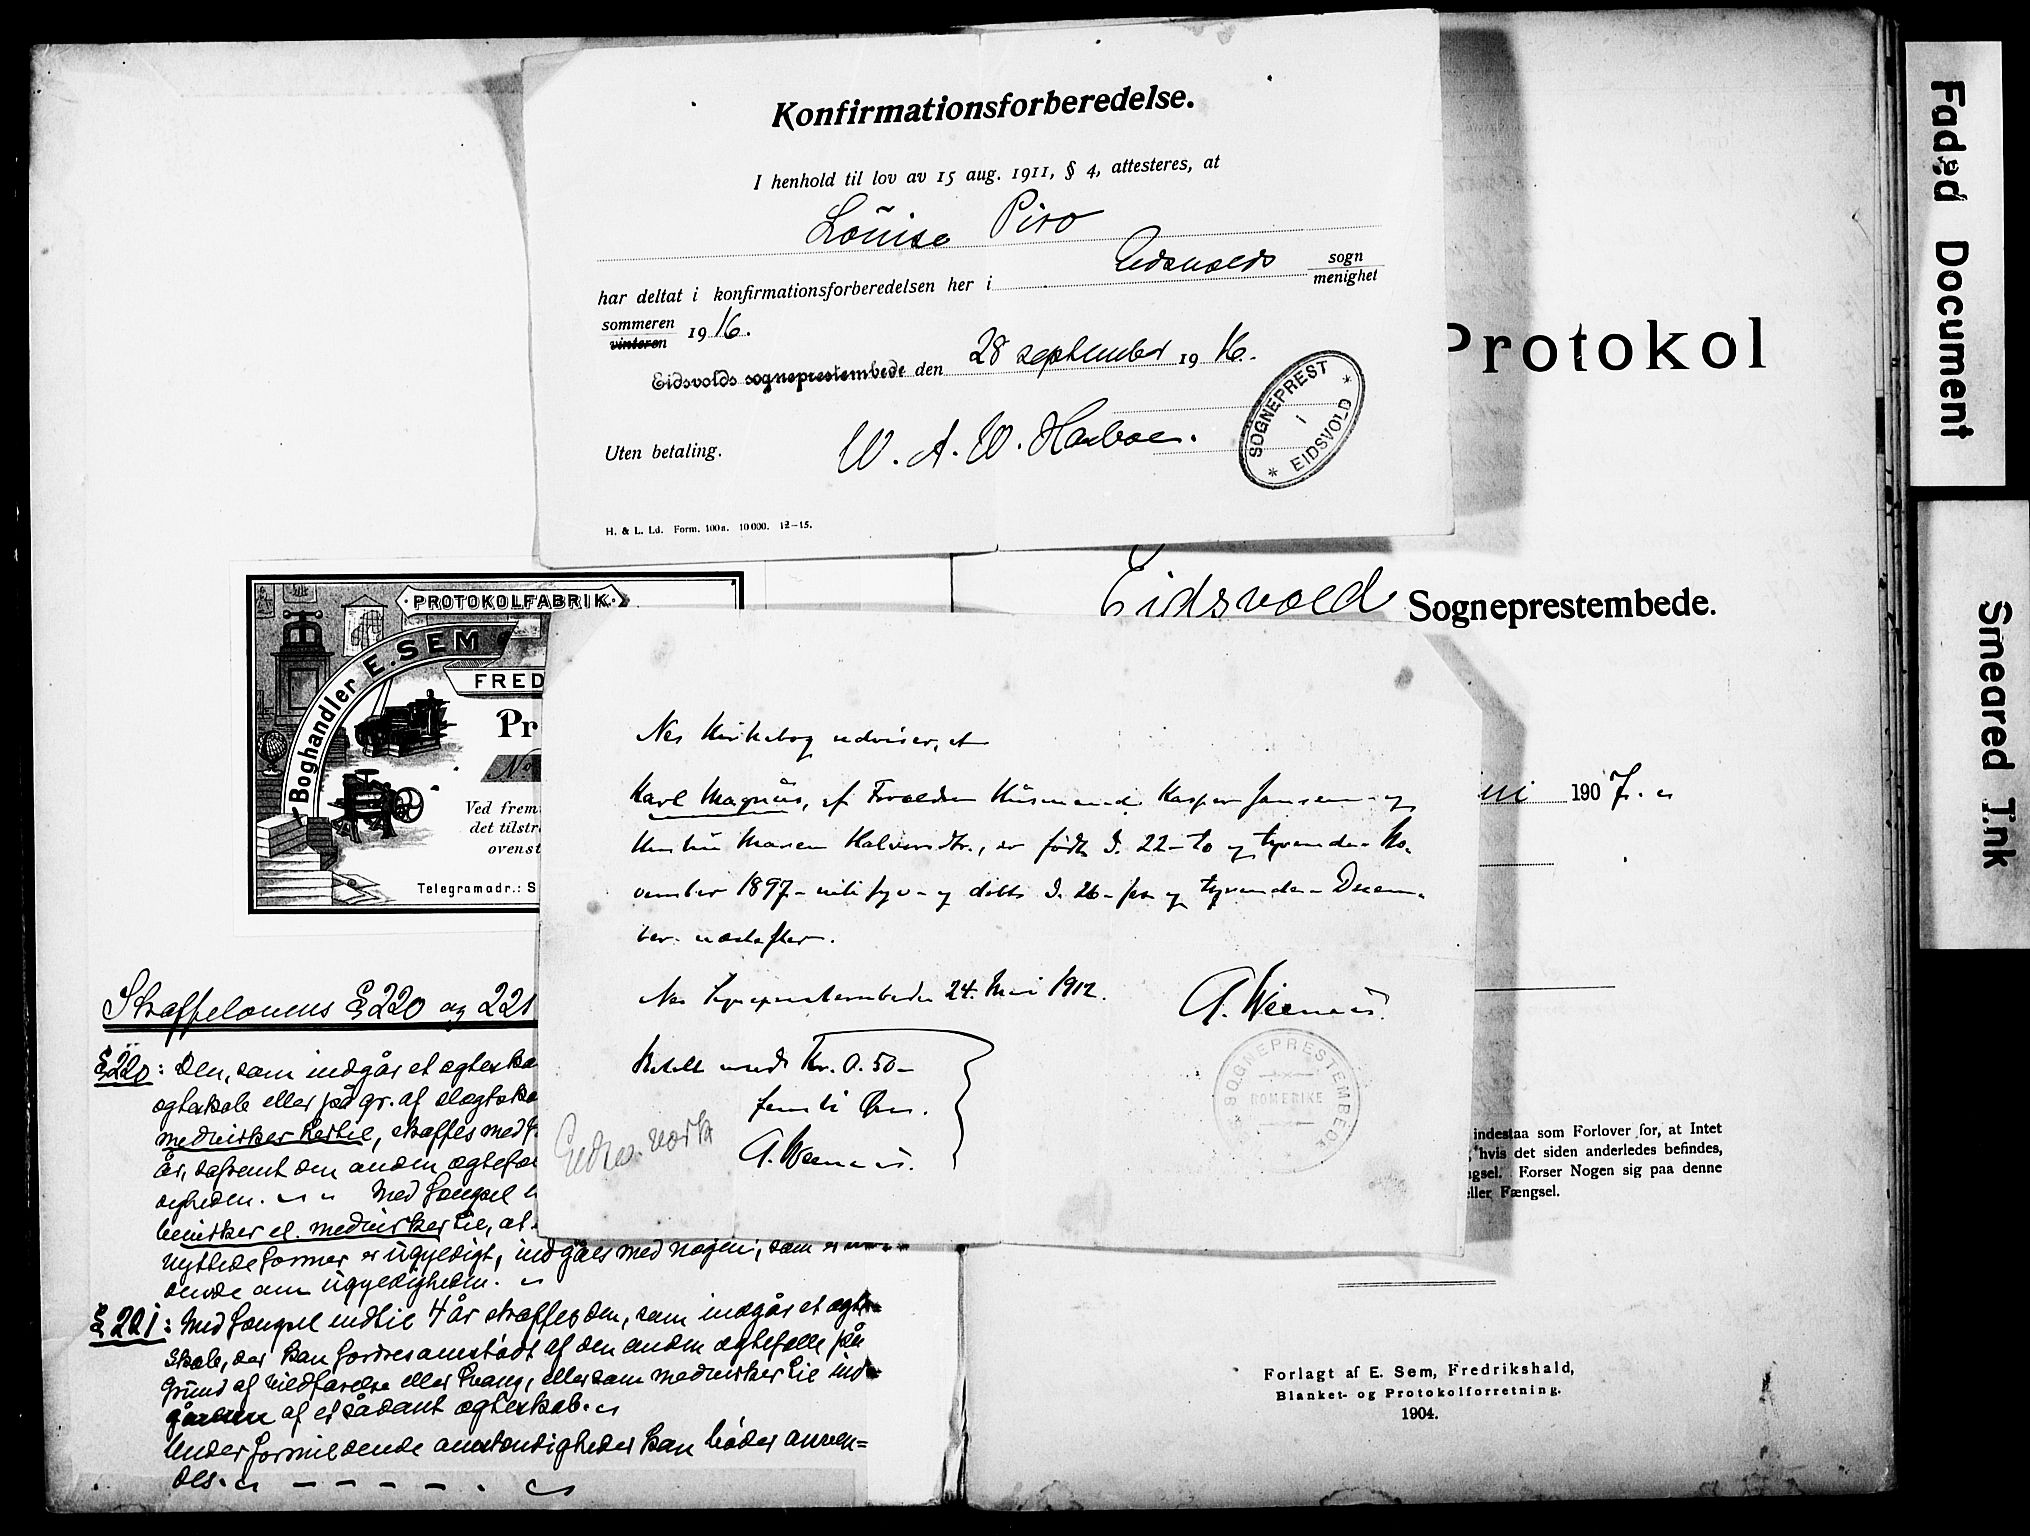 Konfirmationsforberedelse.
I henhold til lov av 15 aug. 1911, § 4, attesteres, at
Louise Piro
har deltat i konfirmationsforberedelsen her i Eidsvolds sogn
menighet
sommeren
vinteren
1916.
Eidsvolds sogneprestembede den 28 september 1916.
Uten betaling.
W. A. W. Harboe.
SOGNEPREST
i
EIDSVOLD
H. & L. Ld. Form. 100a. 10000. 12-15.
Protokol
Eidsvold Sogneprestembede.
1907.
PROTOKOLFABRIK
Boghandler E. SEM
FRED
Pr
No
Ved frem
det tilstr
ovenst
Telegramadr.: S
Nes Kirkebog udviser, at
Karl Magnus, af Forældre Husmand Kasper Jansen og
Hustru Maren Halvorsdtr., er født d. 22-to og tyvende- No-
vember 1897- niti syv- og døbt d. 26- sex og tyvende- Decem-
ber næstefter.
Nes Sogneprestembede 24. Mai 1912.
Betalt med Kr. 0.50-
femti Øre.
SOGNEPRESTEMBEDE
ROMERIKE
Straffelovens § 220 og 221
§ 220: Den, som indgår et ægteska
ægteskab eller på gr. af slægtska
medvirker hertil, straffes med f
år, såfremt den anden ægtefæ
igheden. Med Fængsel
bevirker el. medvirker til, at
nyttede former er ugyldigt, indgåes med nogen, som er
dende om ugyldigheden.
§ 221: Med Fængsel indtil 4 år straffes den, som indgår et ægte
skab, der kan fordres omstødt af den anden ægtefælle på
Grund af vildfarelse eller tvang, eller som medvirker til ind-
gåelsen af et sådant ægteskab.
Under formildende omstændigheder kan bøder anven=
des.
indestaa som Forlover for, at Intet
hvis det siden anderledes befindes,
gsel. Forser Nogen sig paa denne
ller Fængsel.
Forlagt af E. Sem, Fredrikshald,
Blanket- og Protokolforretning.
1904.
Faded Document
Smeared Ink